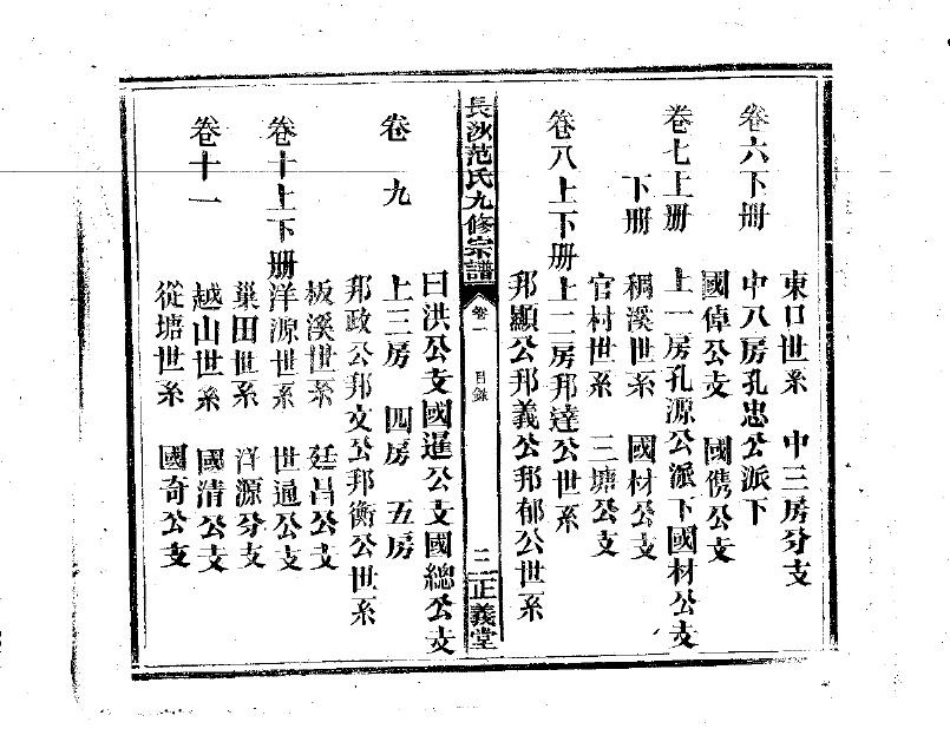 東口世系　中三房分支
卷六下册　中八房孔忠公派下
國偉公支　國儁公支
卷七上册　上一房孔源公派下國材公支
下册　稠溪世系　國材公支
官村世系　三塘公支
卷八上下册　上二房邦達公世系
邦顯公邦義公邦郁公世系
長沙范氏九修宗譜　卷一　目錄　二　正義堂
曰洪公支國暹公支國總公支
卷九　上三房　四房　五房
邦政公邦文公邦衡公世系
板溪世系　廷昌公支
卷十上下册　洋源世系　世通公支
巢田世系　洋源分支
卷十一　越山世系　國清公支
從塘世系　國奇公支